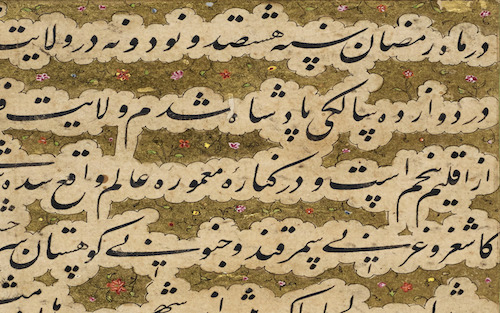 در ماه رمضان سنه هشتصد و نود و نه در ولایت
در دوازده سالکی پادشاه شدم ولایت
از اقلیم پنجم است و در کناره معموره عالم واقع شده
کاشغر و غربی سمرقند و جنوبی کوهستان